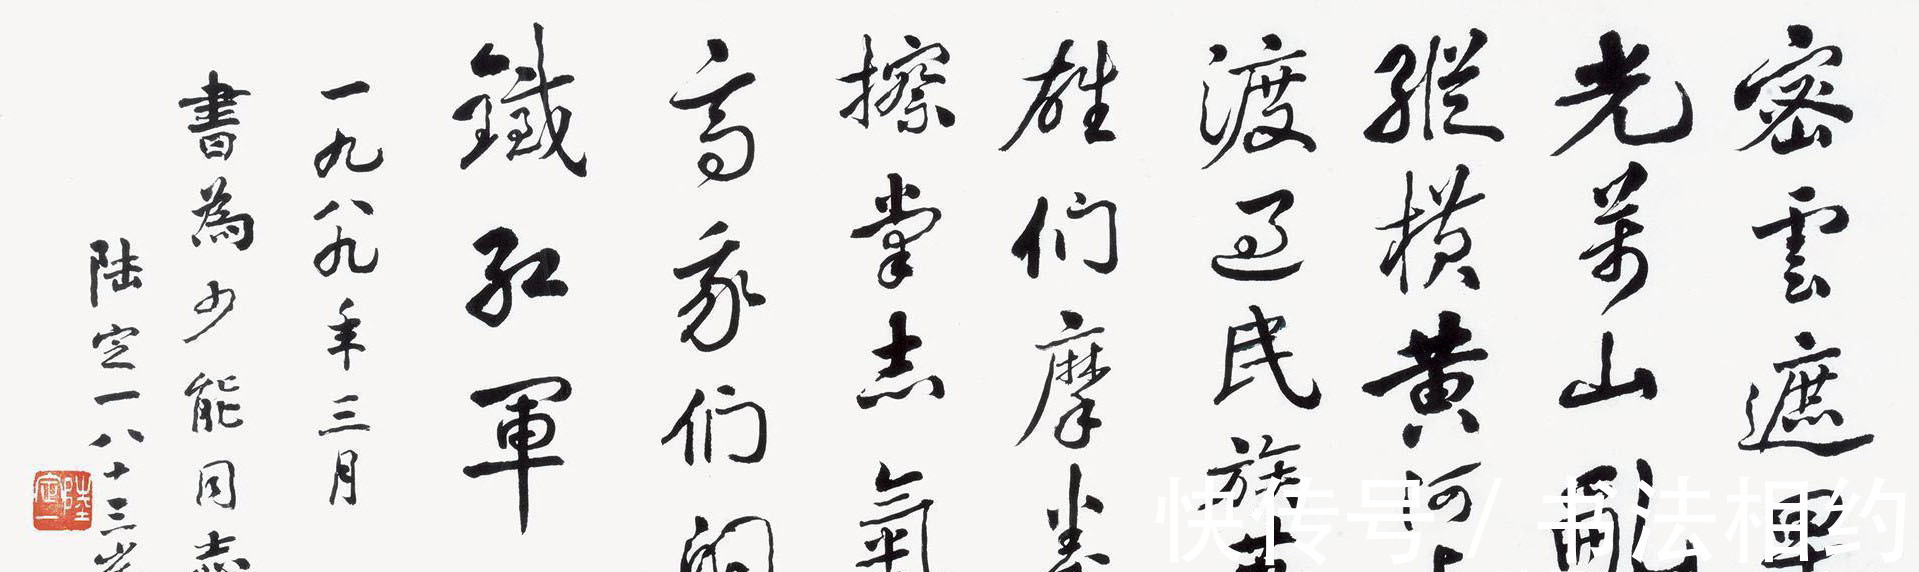 密雲遮星
光萬山亂
縱橫黄河
渡過民族
雄們摩拳
擦掌志氣
高我們的
鐵紅軍
一九八九年三月
書為少能同志
陸定一八十三歲
陸定一
快传号 / 书法相约